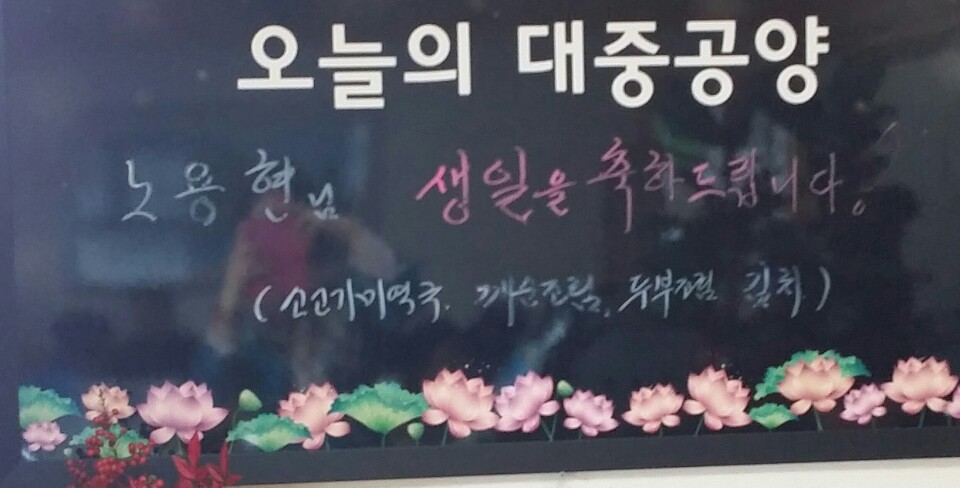 오늘의 대중공양
노용현님 생일을 축하드립니다.
(소고기미역국. 깨순조림, 두부조림 김치)